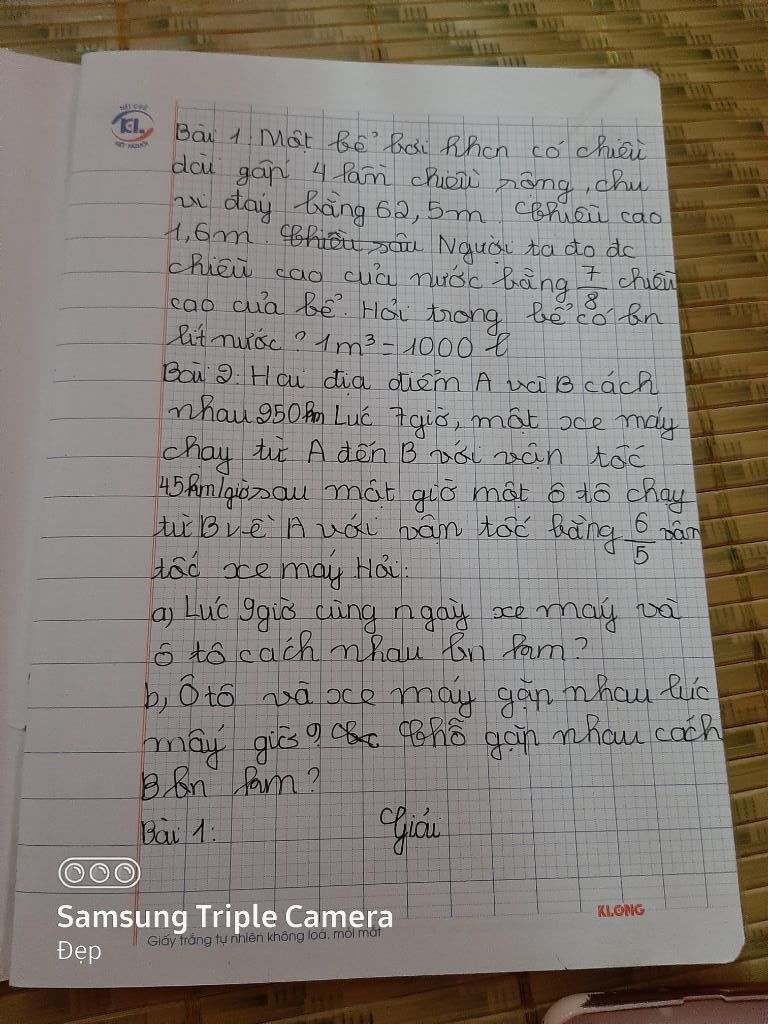 NÉT CHỮ
KL
NẾT NGƯỜI
Bài 1: Một bể bơi hhcn có chiều
dài gấp 4 lần chiều rộng, chu
vi đáy bằng 62,5m. Chiều cao
1,6m. Chiều sâu Người ta đo đc
chiều cao của nước bằng 7/8 chiều
cao của bể. Hỏi trong bể có bn
lít nước? 1m³ = 1000 l
Bài 2: Hai địa điểm A và B cách
nhau 950km Lúc 7giờ, một xe máy
chạy từ A đến B với vận tốc
45km/giờ sau một giờ một ô tô chạy
từ B về A với vận tốc bằng 6/5 vận
tốc xe máy Hỏi:
a, Lúc 9giờ cùng ngày xe máy và
ô tô cách nhau bn kam?
b, Ô tô và xe máy gặp nhau lúc
mấy giờ? Chỗ gặp nhau cách
B bn kam?
Bài 1: Giải
KLONG
Samsung Triple Camera
Đẹp
Giấy trắng tự nhiên không loá, mỏi mắt